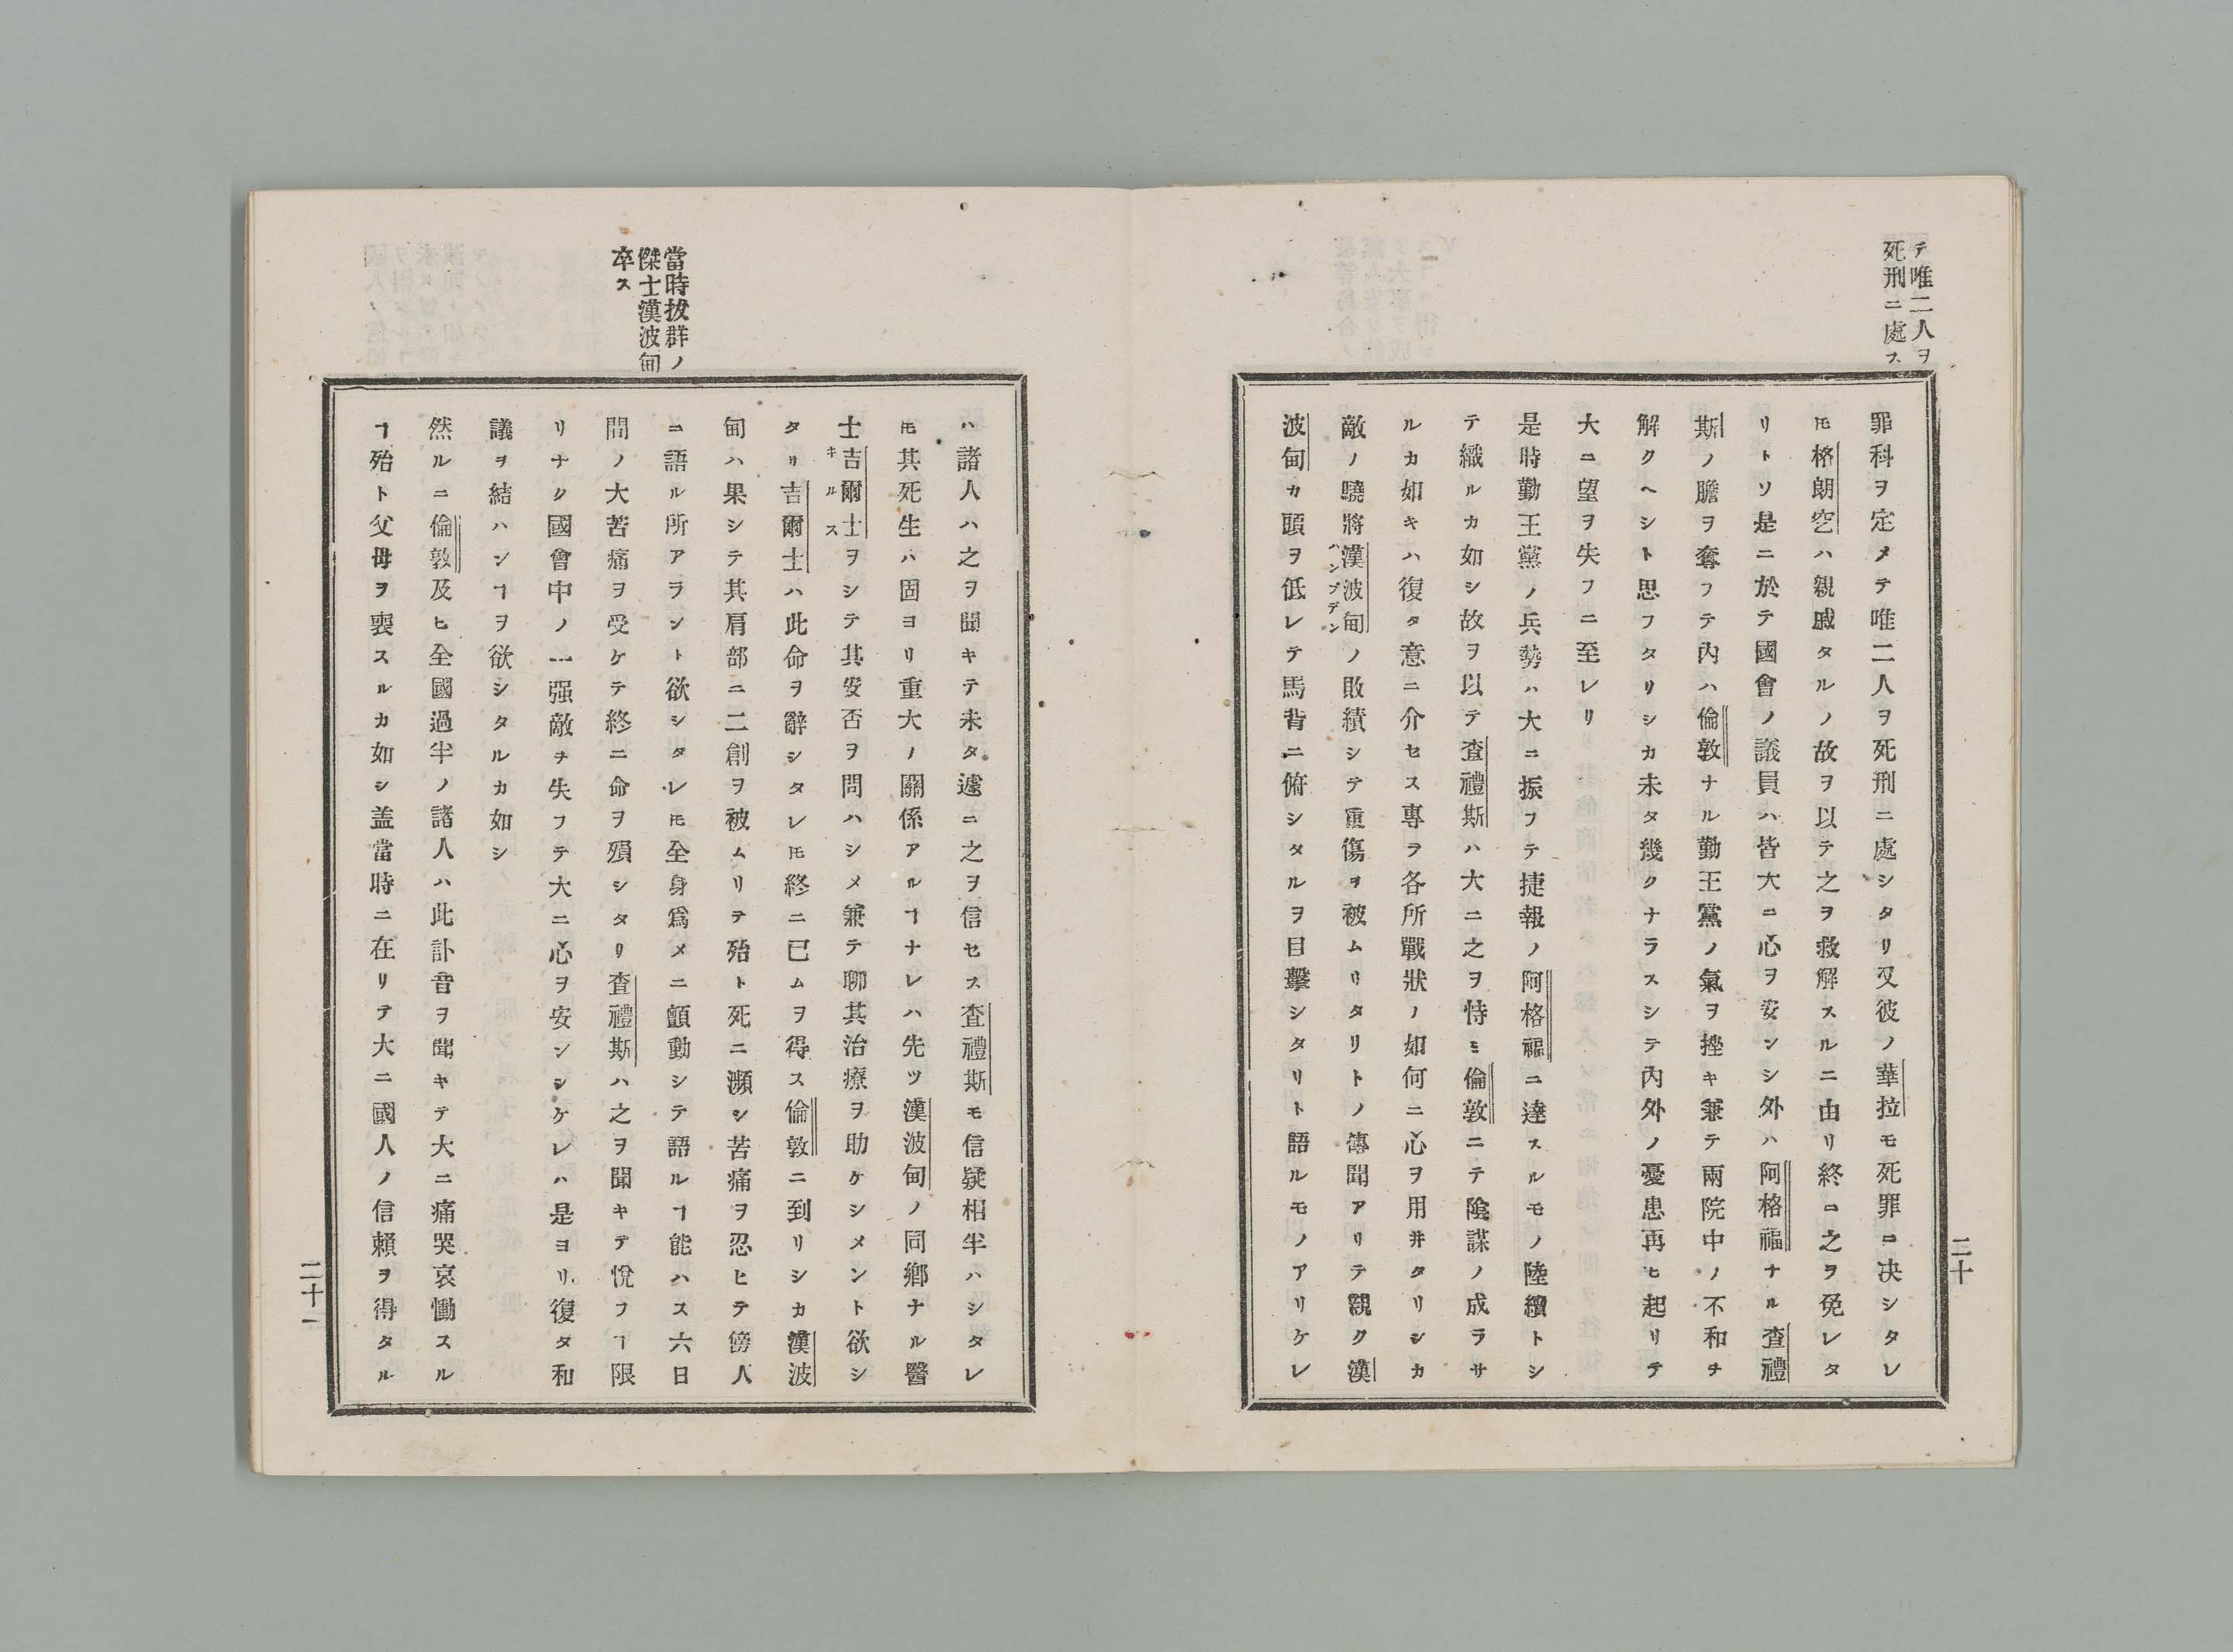 テ唯二人ヲ
死刑ニ處ス
罪科ヲ定メテ唯二人ヲ死刑ニ處シタリ又彼ノ華拉モ死罪ニ决シタレ
𪜈格朗空ハ親戚タルノ故ヲ以テ之ヲ救解スルニ由リ終ニ之ヲ免レタ
リトソ是ニ於テ國會ノ議員ハ皆大ニ心ヲ安ンシ外ハ阿格福ナル査禮
斯ノ膽ヲ奪フテ内ハ倫敦ナル勤王黨ノ氣ヲ挫キ兼テ兩院中ノ不和ヲ
解クヘシト思フタリシカ未タ幾クナラスシテ内外ノ憂患再ヒ起リテ
大ニ望ヲ失フニ至レリ
是時勤王黨ノ兵勢ハ大ニ振フテ捷報ノ阿格福ニ達スルモノ陸續トシ
テ織ルカ如シ故ヲ以テ査禮斯ハ大ニ之ヲ恃ミ倫敦ニテ陰謀ノ成ラサ
ルカ如キハ復タ意ニ介セス專ラ各所戰狀ノ如何ニ心ヲ用井タリシカ
敵ノ驍將漢波甸ノ敗績シテ重傷ヲ被ムリタリトノ傳聞アリテ親ク漢
ハンプデン
波甸カ頭ヲ低レテ馬背ニ俯シタルヲ目擊シタリト語ルモノアリケレ
二十
當時拔群ノ
傑士漢波甸
卒ス
ハ諸人ハ之ヲ聞キテ未タ遽ニ之ヲ信セス査禮斯モ信疑相半ハシタレ
𪜈其死生ハ固ヨリ重大ノ關係アルヿナレハ先ツ漢波甸ノ同鄉ナル醫
士吉爾士ヲシテ其安否ヲ問ハシメ兼テ聊其治療ヲ助ケシメント欲シ
キルス
タリ吉爾士ハ此命ヲ辭シタレ𪜈終ニ已ムヲ得ス倫敦ニ到リシカ漢波
甸ハ果シテ其肩部ニ二創ヲ被ムリテ殆ト死ニ瀕シ苦痛ヲ忍ヒテ傍人
ニ語ル所アラント欲シタレ𪜈全身爲メニ顫動シテ語ルヿ能ハス六日
間ノ大苦痛ヲ受ケテ終ニ命ヲ殞シタリ査禮斯ハ之ヲ聞キテ悅フヿ限
リナク國會中ノ一强敵ヲ失フテ大ニ心ヲ安ンシケレハ是ヨリ復タ和
議ヲ結ハンヿヲ欲シタルカ如シ
然ルニ倫敦及ヒ全國過半ノ諸人ハ此訃音ヲ聞キテ大ニ痛哭哀慟スル
ヿ殆ト父母ヲ喪スルカ如シ盖當時ニ在リテ大ニ國人ノ信賴ヲ得タル
二十一